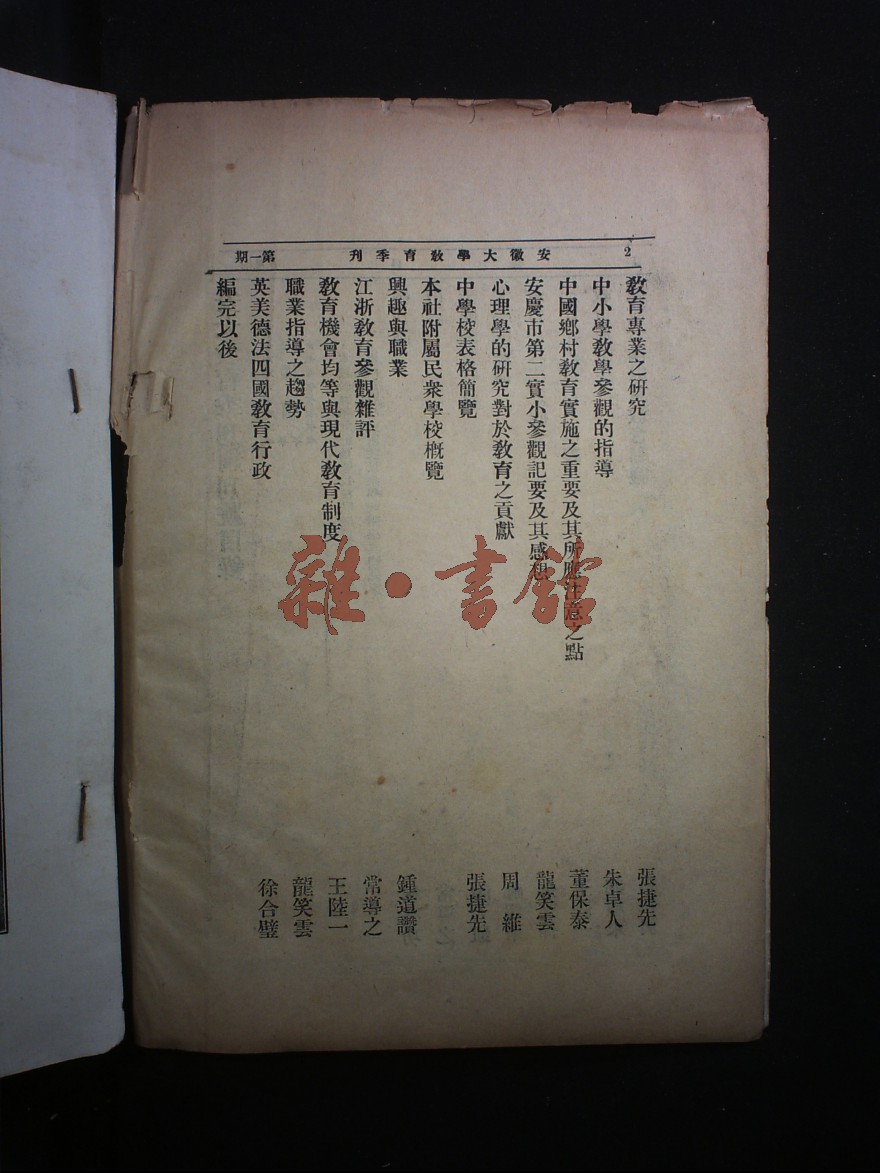 2
安徽大學教育季刊
第一期
教育專業之研究 張捷先
中小學教學參觀的指導 朱卓人
中國鄉村教育實施之重要及其所應注意之點 董保泰
安慶市第二實小參觀記要及其感想 龍笑雲
心理學的研究對於教育之貢獻 周維
中學校表格簡覽 張捷先
本社附屬民衆學校概覽
興趣與職業 鍾道讚
江浙教育參觀雜評 常導之
教育機會均等與現代教育制度 王陸一
職業指導之趨勢 龍笑雲
英美德法四國教育行政 徐合璧
編完以後
雜·書館